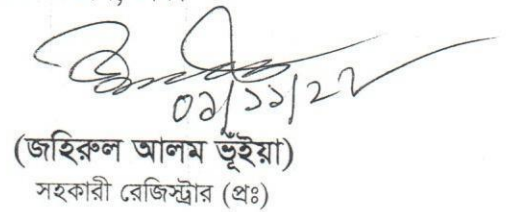 ০১/১১/২২
(জহিরুল আলম ভূঁইয়া)
সহকারী রেজিস্ট্রার (প্রঃ)